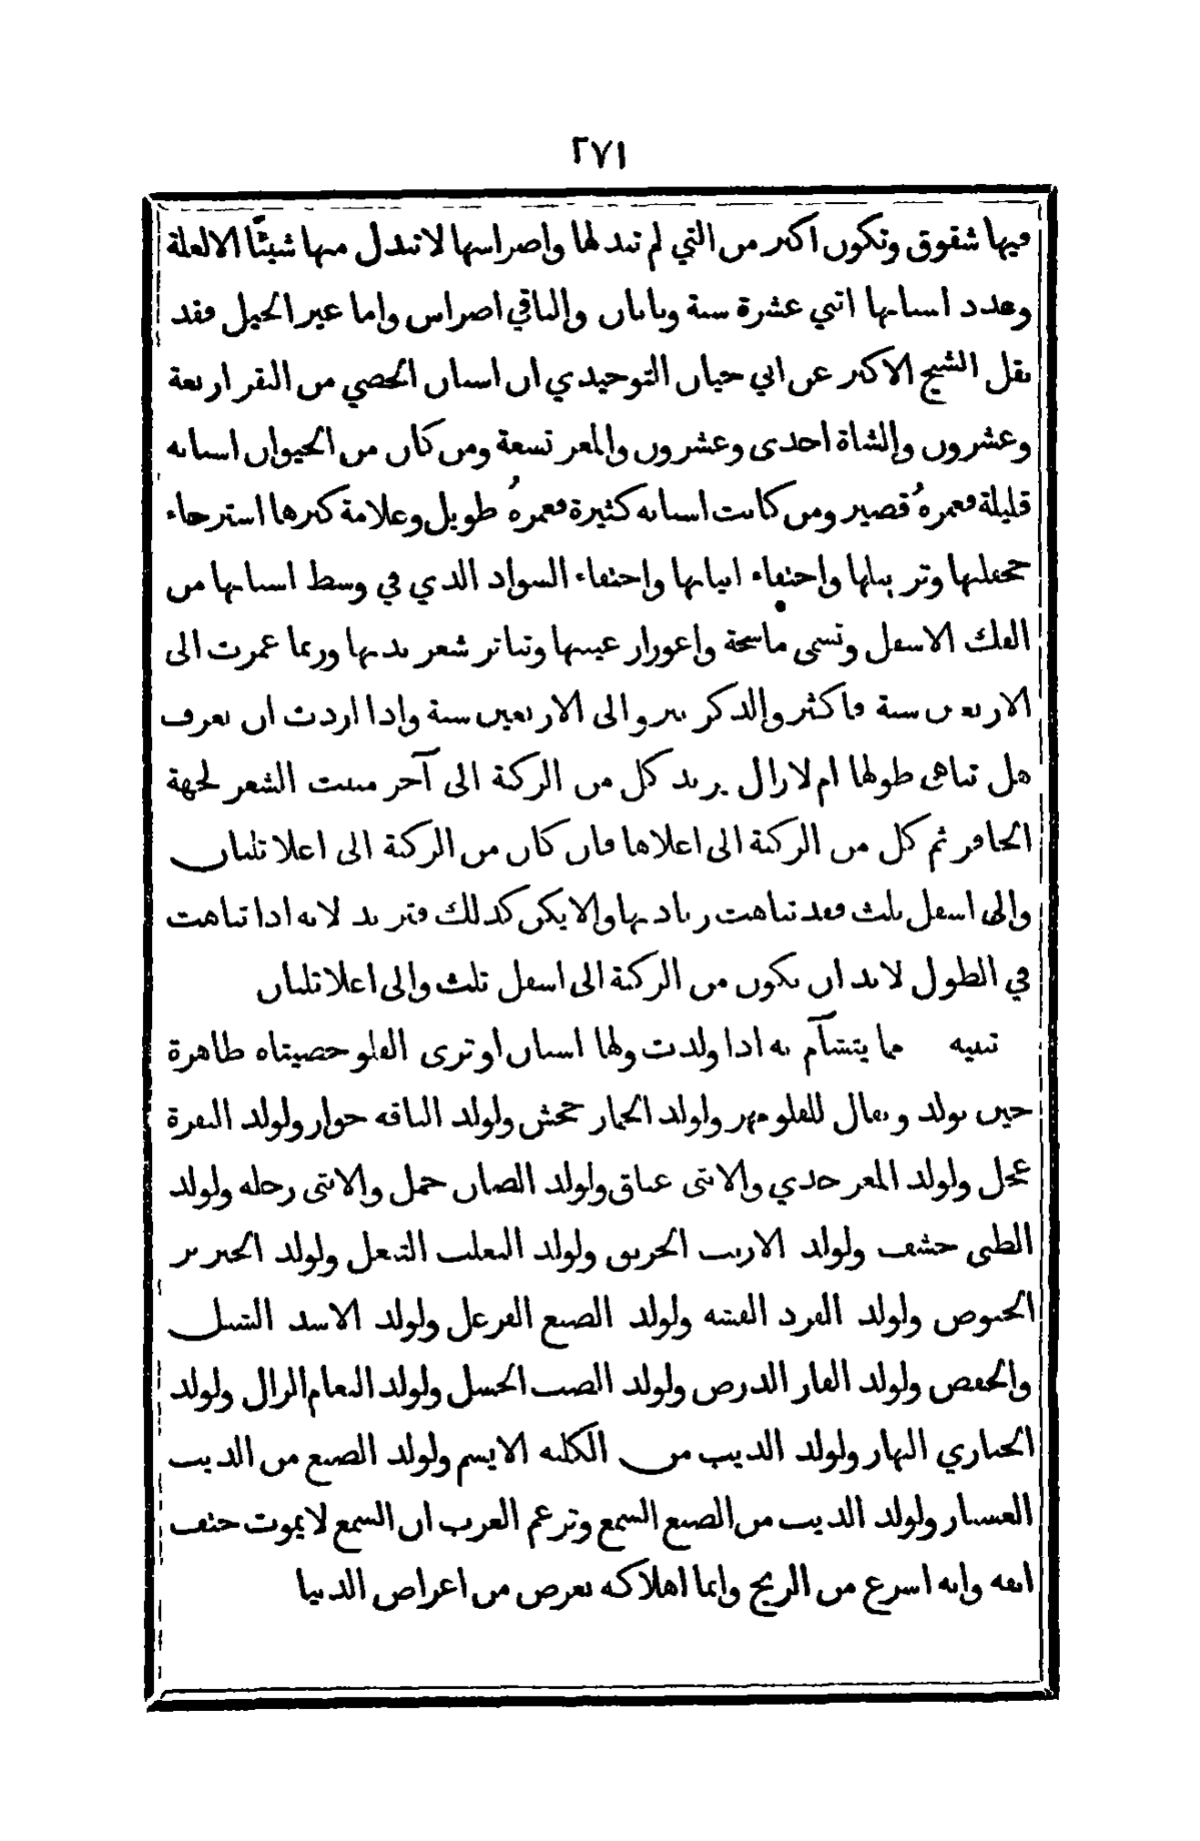 ٢٧١
فيها شقوق وتكون اكبر من التي لم تبدلها واضراسها لا تبدل منها شيئًا الا لعلة
وعدد اسنانها اثني عشرة سنة ونابان والباقي اضراس واما غير الخيل فقد
نقل الشيخ الاكبر عن ابي حيان التوحيدي ان اسنان الخصي من البقر اربعة
وعشرون والشاة احدى وعشرون والمعز تسعة ومن كان من الحيوان اسنانه
قليلة فعمرهُ قصير ومن كانت اسنانه كثيرة فعمرهُ طويل وعلامة كبرها استرخاء
جحفلتها وتر بيلها واختفاء انيابها واختفاء السواد الذي في وسط اسنانها من
الفك الاسفل وتسمى ماسحة واغورار عينيها وتناثر شعر بدنها وربما عمرت الى
الاربعين سنة فاكثر والذكر ينزو الى الاربعين سنة واذا اردت ان تعرف
هل تناهى طولها ام لازال يزيد كل من الركبة الى آخر منبت الشعر لجهة
الحافر ثم كل من الركبة الى اعلاها فان كان من الركبة الى اعلا ثلثان
والى اسفل ثلث فقد تناهت زيادتها والا يكن كذلك فتزيد لانه اذا تناهت
في الطول لابد ان يكون من الركبة الى اسفل ثلث والى اعلا ثلثان
تنبيه مما يتشآم به اذا ولدت ولها اسنان او ترى الفلو خصيتاه ظاهرة
حين يولد ويقال للفلو مهر ولولد الحمار جحش ولولد الناقه حوار ولولد البقرة
عجل ولولد المعز جدي والانثى عناق ولولد الضان حمل والانثى رخله ولولد
الظبي خشف ولولد الارنب الخرنق ولولد الثعلب التتفل ولولد الخنزير
الخنوص ولولد القرد القشه ولولد الضبع الفرعل ولولد الاسد الشبل
والحفص ولولد الفار الدرص ولولد الضب الحسل ولولد النعام الرال ولولد
الحباري النهار ولولد الذيب من الكلبه الايسم ولولد الضبع من الذيب
العسبار ولولد الذيب من الضبع السمع وتزعم العرب ان السمع لا يموت حتف
انفه وانه اسرع من الريح وانما اهلاكه بعرض من اعراض الدنيا